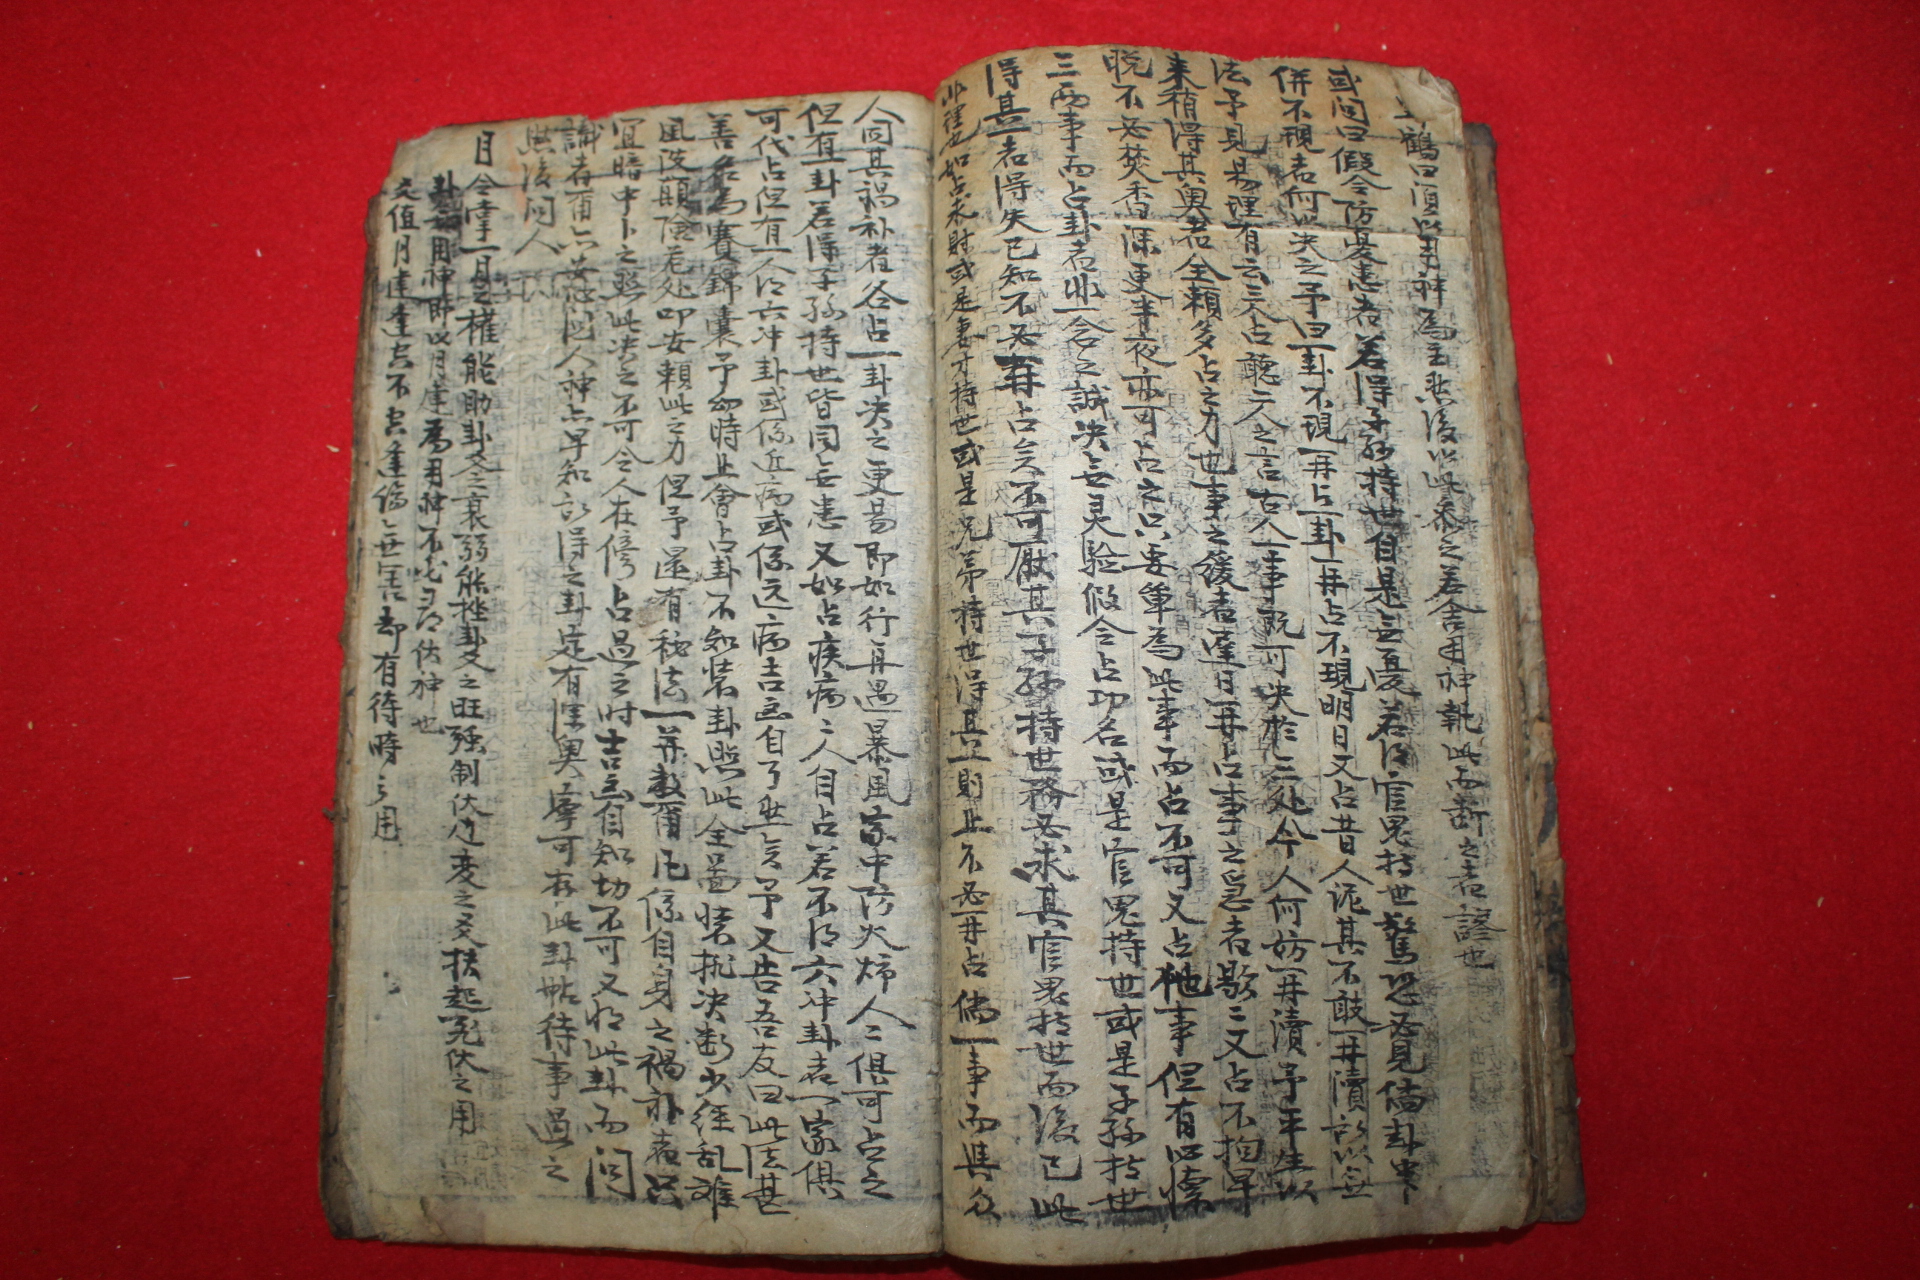 鶴曰須以用神爲主然後以此參之若舍用神執此而斷之者謬也
或问曰假令防憂患者若得子孫持世自是无憂若得官鬼持世驚恐必見倘卦中
併不現者何以决之予曰一卦不現再占一卦再占不現明日又占昔人泥其不敢再瀆所以无
法予見易理有云三人占聽二人之言古人一事既可决於三处今人何妨再瀆予年生以
来稍得其奥者全賴多占之力也事之緩者遲日再占事之急者歇歇又占不拘早
晚不必焚香深更半夜亦可占之只要單爲此事而占不可又占他事但有以懷
三両事而占卦者此一念之誠决无灵验假令占功名或是官鬼持世或是子孫持世
得其一者得失已知不必再占矣不可厭其子孫持世務必求其官鬼持世而後已此
非理也如占求財或是妻才持世或是兄弟持世得其一則止不必再占倘一事而其众
人同其禍福者各占一卦决之更易即如行舟遇暴風家中防火燭人人俱可占之
但有一卦若得子孫持世皆同无患又如占疾病人人自占若不得六冲卦者一家俱
可代占但有一人得六冲卦或係近病或係远病吉凶自了然矣予又告吾友曰此法甚
善名爲賽錦囊予幼時止會占卦不知裝卦照此全啚裝排决断少經乱難
風波顛險危处叩安賴此之力但予還有秘法一并教爾凡係自身之禍福者只
宜暗中卜之照此决之不可令人在傍占過之时吉凶自知切不可又将此卦而问
識者爾六安心但人神亦早知所得之卦定有深奥寧可存此卦帖待事過之
然後问人
月令掌一月之權能助卦爻之衰弱能挫卦爻之旺强制伏动变之爻扶起飞伏之用
卦無用神即以月建爲用神不必尋伏神也
爻值月建逢空不空逢傷無害却有待時之用